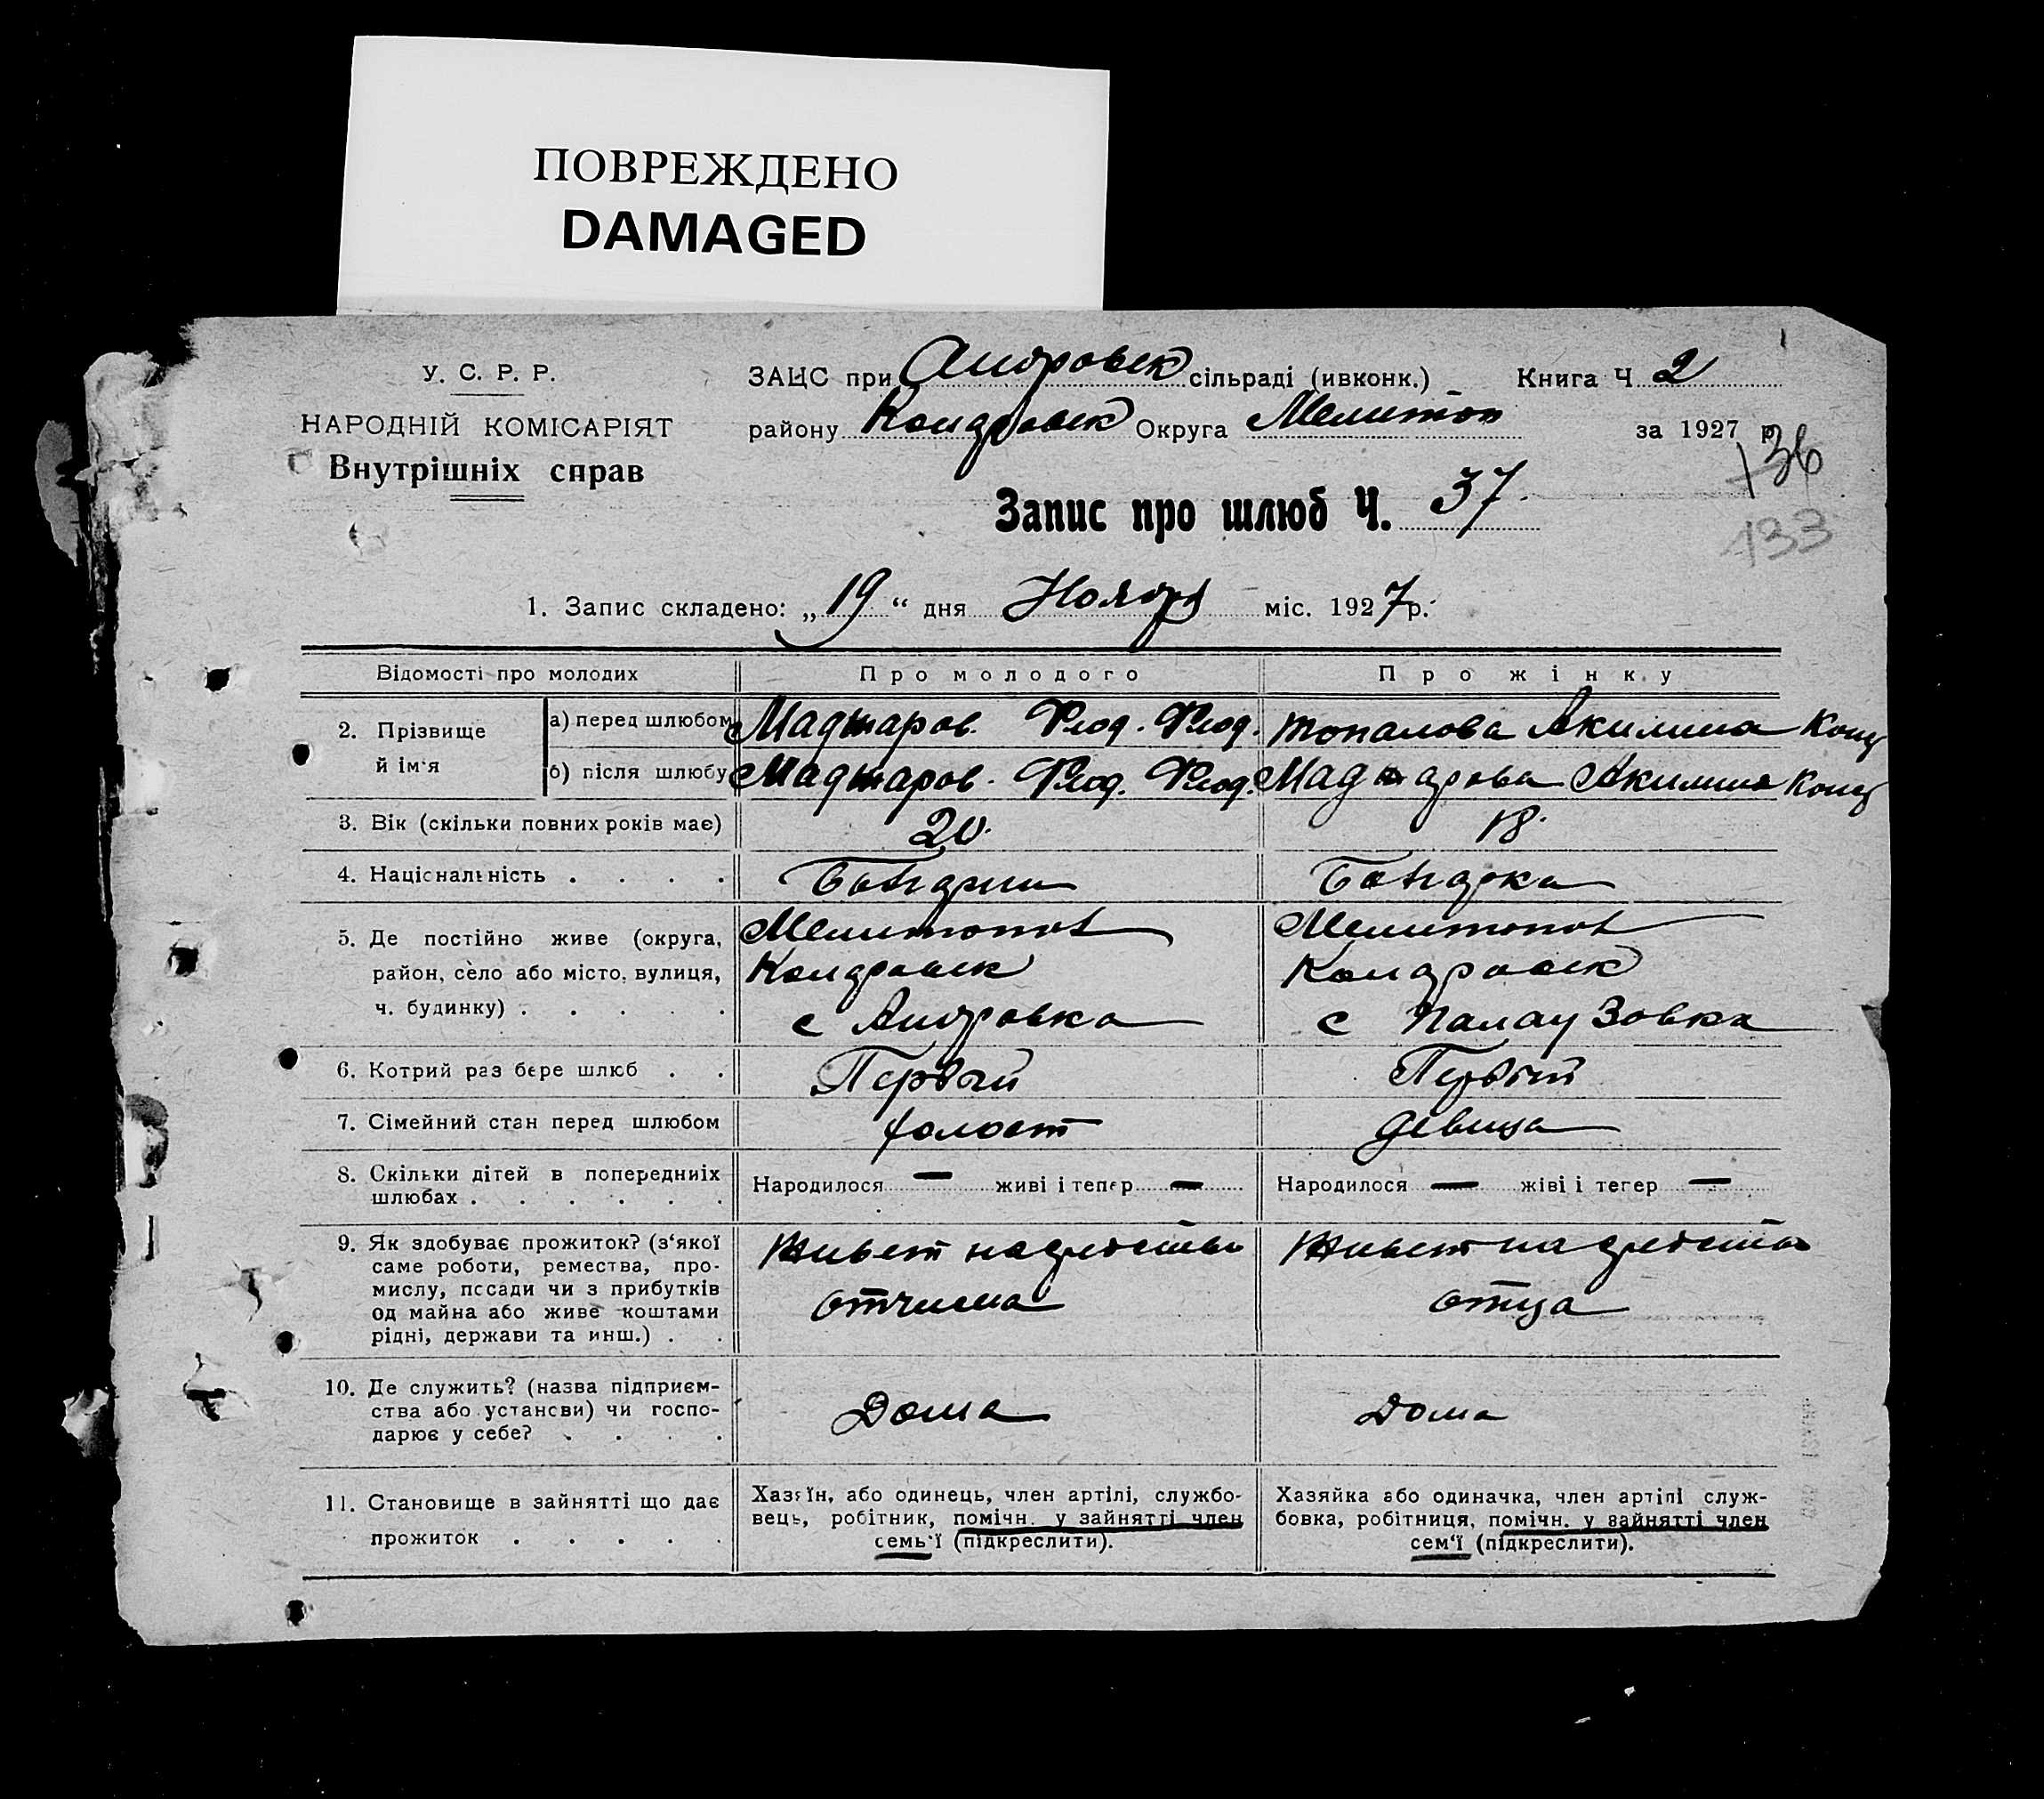 ПОВРЕЖДЕНО
DAMAGED
У. С. Р. Р.
НАРОДНІЙ КОМІСАРІЯТ
Внутрішніх справ
ЗАЦС при Андровск сільраді (ивконк.) Книга Ч 2
району Кондровск Округа Мелитоп за 1927 р.
136
133
Запис про шлюб Ч. 37.
1. Запис складено: „19“ дня Ноября міс. 1927р.
Відомості про молодих Про молодого Про жінку
2. Прізвище й ім'я
а) перед шлюбом Маджаров. Феод. Феод. Топалова Акилина Конд
б) після шлюбу Маджаров. Феод. Феод. Маджарова Акилина Конд
3. Вік (скільки повних років має) 20. 18.
4. Національність . . . . Болгарин Болгарка
5. Де постійно живе (округа, район, село або місто, вулиця, ч. будинку) . . . . .
Мелитопол Мелитопол
Кондровск Кондровск
с Андровка с Палаузовка
6. Котрий раз бере шлюб . . Первый Первый
7. Сімейний стан перед шлюбом холост девица
8. Скільки дітей в попередниіх шлюбах . . . . . .
Народилося — живі і тепер — Народилося — жіві і тегер —
9. Як здобуває прожиток? (з'якої
саме роботи, ремества, про-
мислу, посади чи з прибутків
од майна або живе коштами
рідні, держави та инш.) . .
Живет на средства Живет на средства
отчима отца
10. Де служить? (назва підприєм-
ства або установи) чи госпо-
дарює у себе? . . . .
Дома Дома
11. Становище в зайнятті що дає
прожиток . . . . .
Хазяїн, або одинець, член артілі, службо-
вець, робітник, помічн. у зайнятті член
семь'ї (підкреслити).
Хазяйка або одиначка, член артілі служ-
бовка, робітниця, помічн. у зайнятті член
сем'ї (підкреслити).